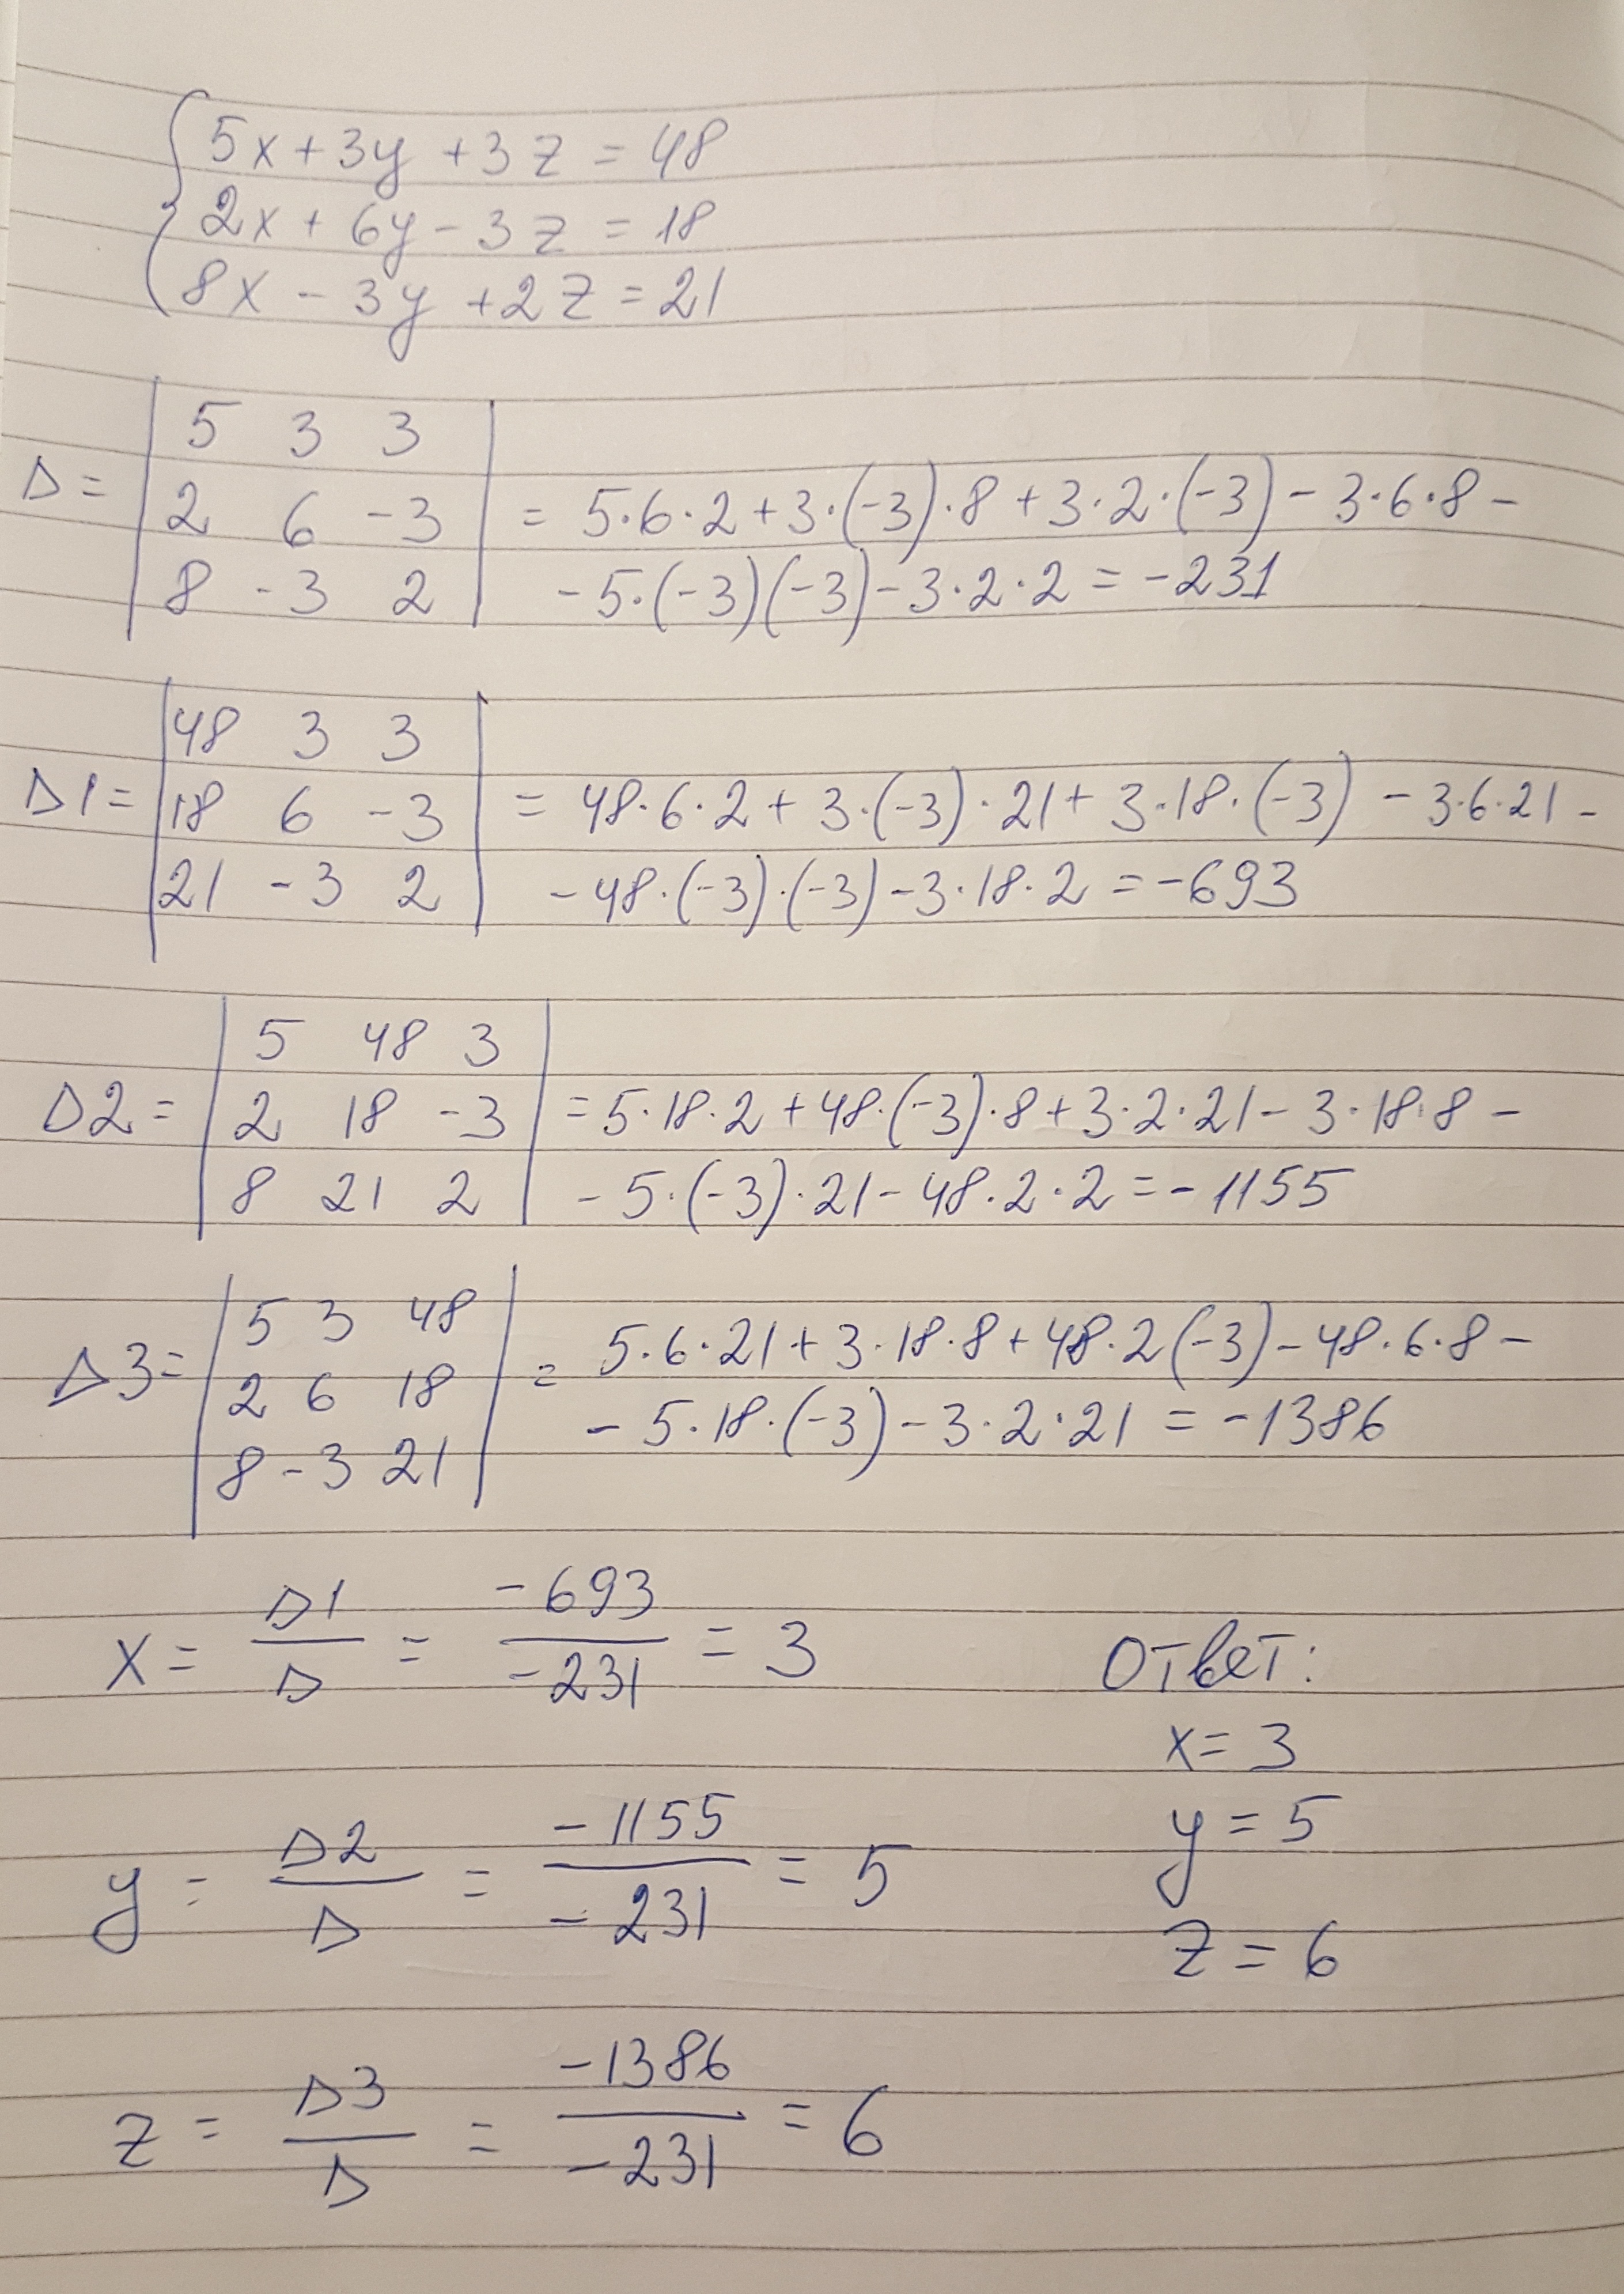 5x+3y+3z=48
2x+6y-3z=18
8x-3y+2z=21
5 3 3
Δ= 2 6 -3 = 5·6·2+3·(-3)·8+3·2·(-3)-3·6·8-
8 -3 2 -5·(-3)(-3)-3·2·2=-231
48 3 3
Δ1= 18 6 -3 = 48·6·2+3·(-3)·21+3·18·(-3)-3·6·21-
21 -3 2 -48·(-3)·(-3)-3·18·2=-693
5 48 3
Δ2= 2 18 -3 =5·18·2+48·(-3)·8+3·2·21-3·18·8-
8 21 2 -5·(-3)·21-48·2·2=-1155
5 3 48
Δ3= 2 6 18 = 5·6·21+3·18·8+48·2(-3)-48·6·8-
8 -3 21 -5·18·(-3)-3·2·21=-1386
x= Δ1/Δ = -693/-231 = 3
y= Δ2/Δ = -1155/-231 = 5
z= Δ3/Δ = -1386/-231 = 6
Ответ:
x=3
y=5
z=6